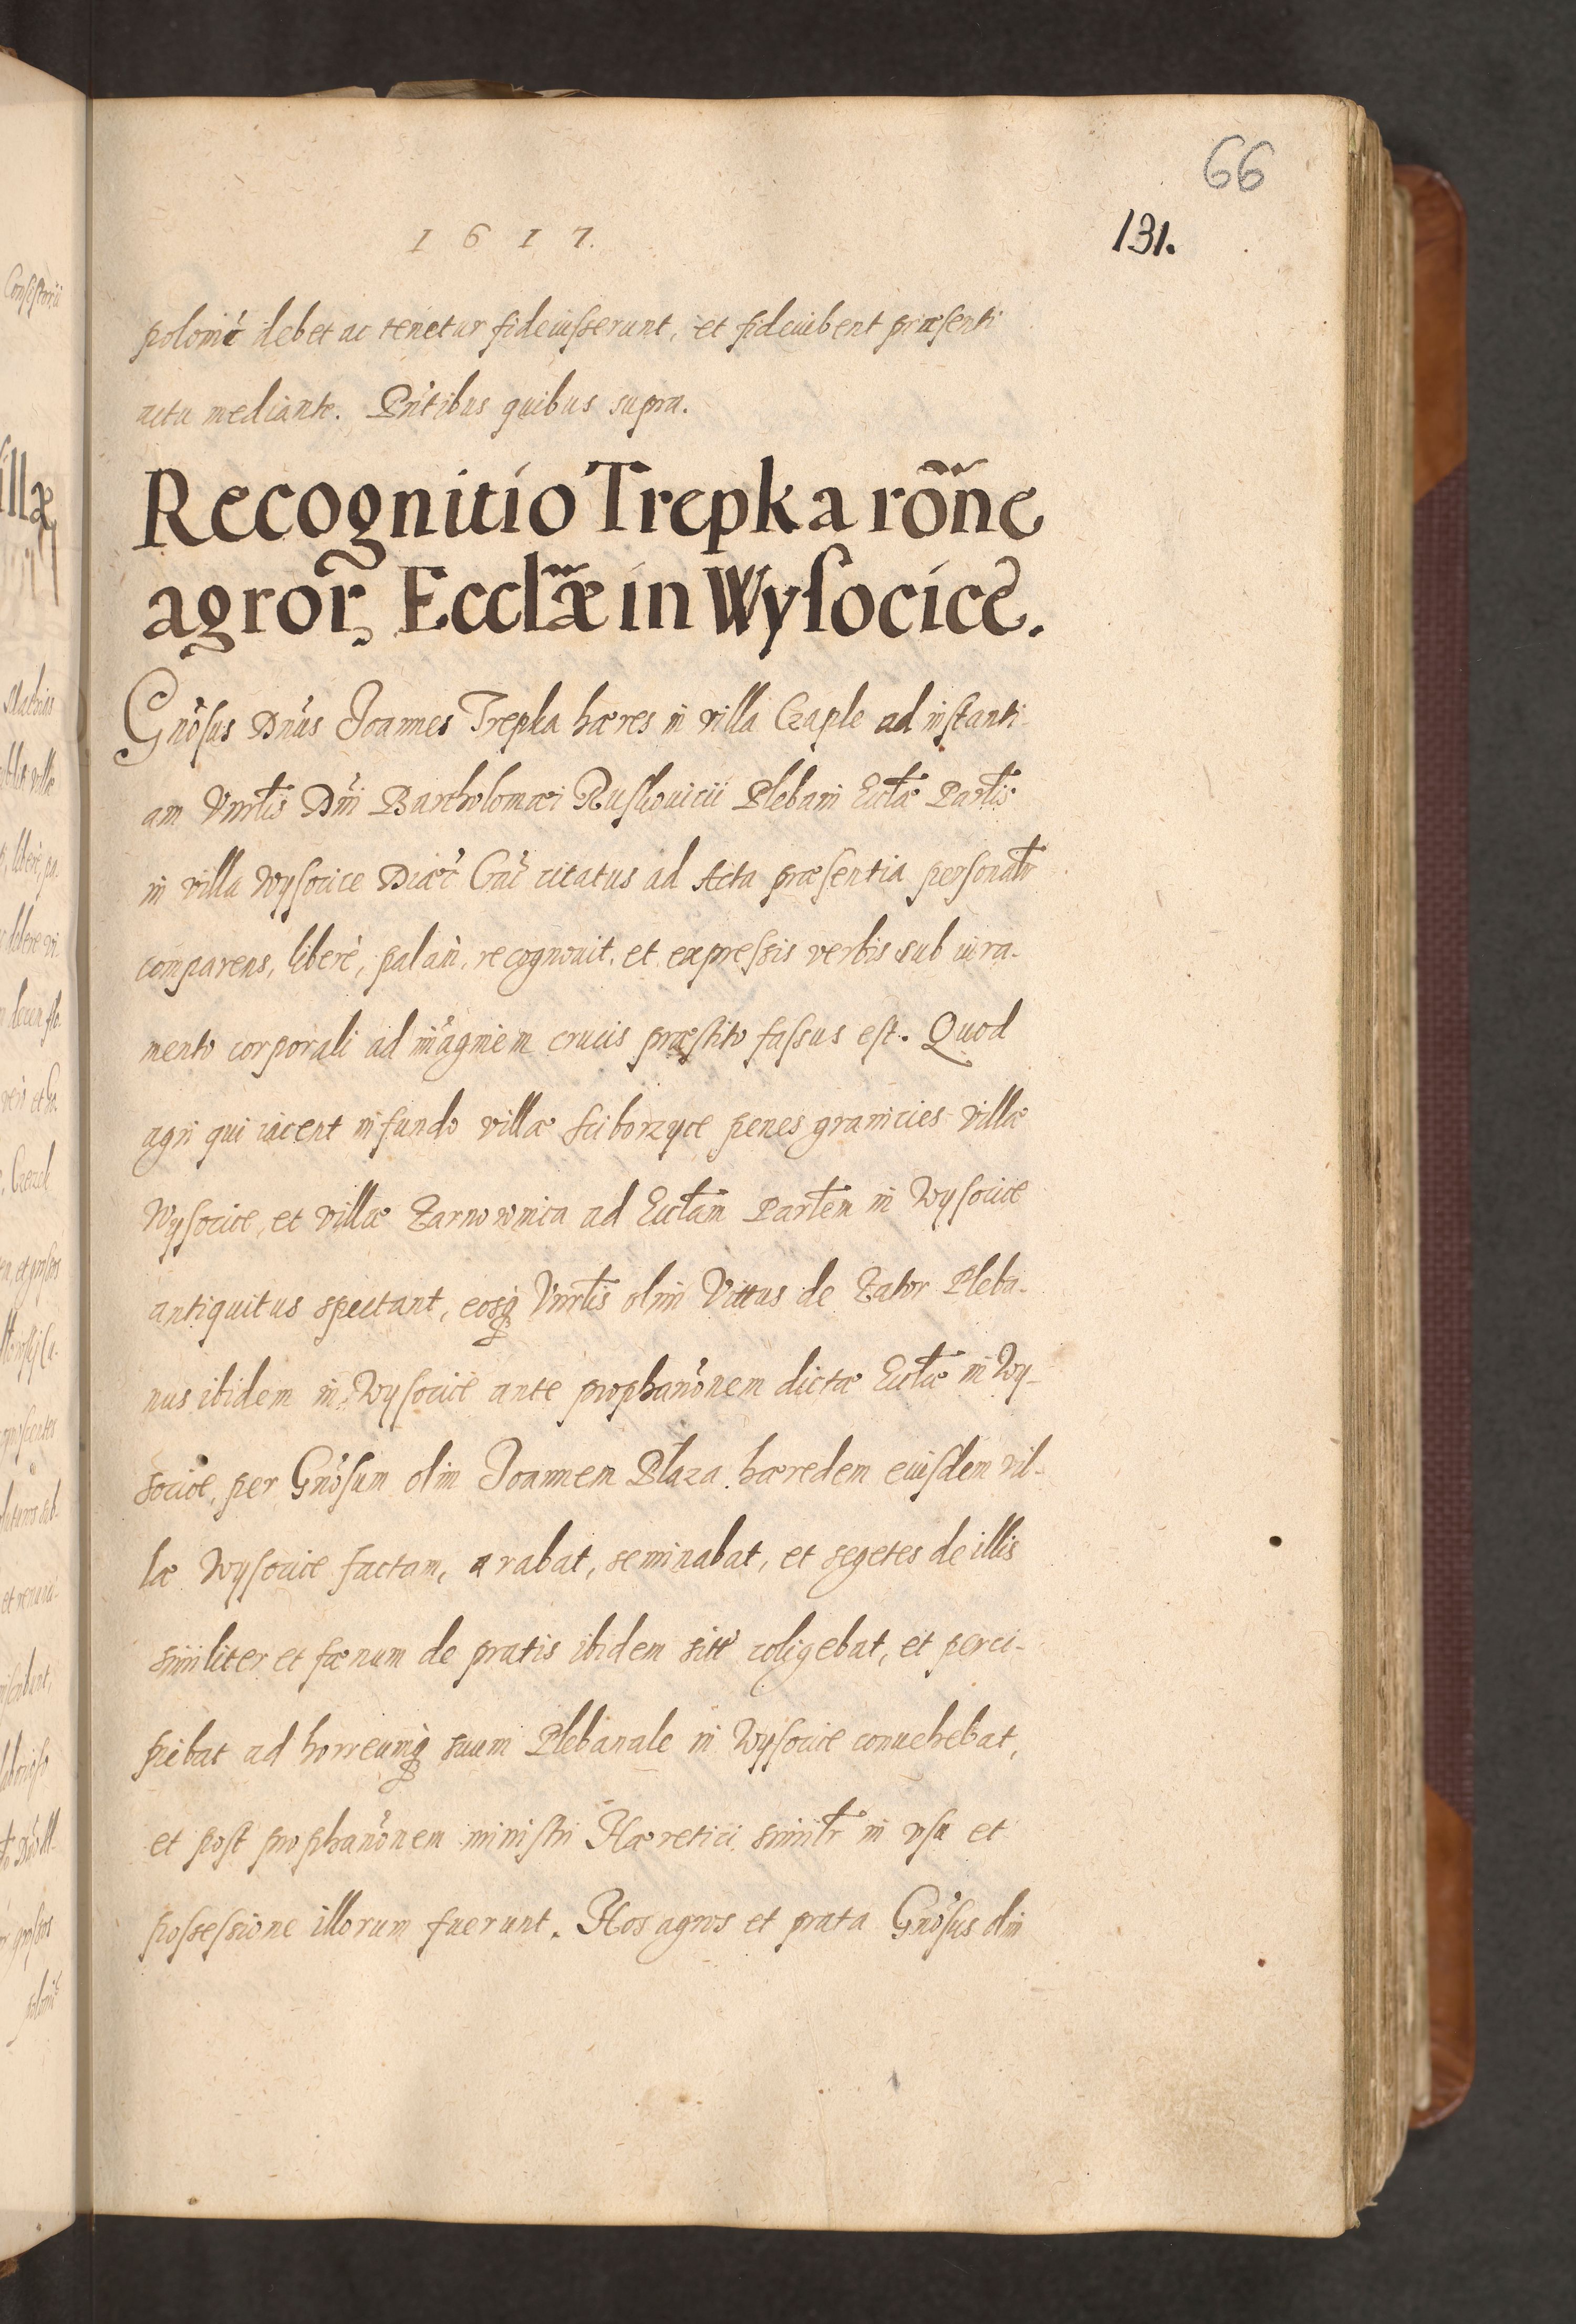 66
1617.
131.
polonic̃ debet ac tenetur fideiusserunt, et fideiubent præsenti
actu mediante. Pñtibus quibus supra.
Recognitio Trepka rõne
agror̃ Ecclæ in Wysocice.
Gnõsus Dñus Joannes Trepka hæres in villa Czaple ad instanti-
am Vnrlis Dñi Bartholomæi Plebani Ecclæ Parlis
in villa Wysocice Diæc̃ Crac̃ citatus ad Acta præsentia personalr
comparens, liberè, palàm, recognouit, et expressis verbis sub iura-
mento corporali ad imaginem crucis præstito fassus est. Quod
agri qui iacent in fundo villæ Sciborzyce penes granicies villæ
Wysocice, et villæ Tarnowmica ad Ecclam Parlem in Wysocice
antiquitus spectant, eosq Vnrlis olim Vittus de Zator Pleba-
nus ibidem in Wysocice ante prophanõnem dictæ Ecclæ in Wy-
socice, per Gnõsum olim Joannem Płaza hæredem eiusdem vil-
læ Wysocice factam, arabat, seminabat, et segetes de illis
similiter et fænum de pratis ibidem sitis coligebat, et perci-
piebat ad horreumq suum Plebanale in Wysocice conuehebat,
et post prophanõnem ministri Hæretici similr in vsu et
possessione illorum fuerunt. Hos agros et prata Gnõsus olim